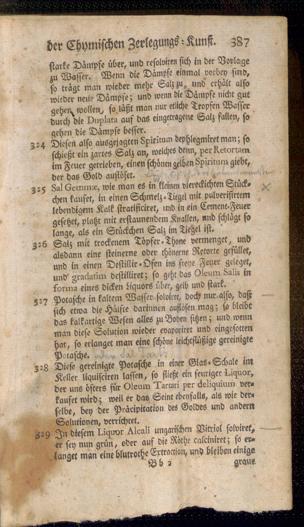 der Chymischen Zerlegungs-Kunst. 387
starke Dämpfe über, und resolviren sich in der Vorlage
zu Wasser. Wenn die Dämpfe einmal vorbey sind,
so trägt man wieder mehr Salz zu, und erhält also
wieder neue Dämpfe; und wenn die Dämpfe nicht gut
gehen, wollen, so läßt man nur etliche Tropfen Wasser
durch die Duplata auf das eingetragene Salz fallen, so
gehen die Dämpfe besser.
324 Diesen also ausgejagten Spiritum dephlegmiret man; so
schießt ein zartes Salz an, welches denn, per Retortam
im Feuer getrieben, einen schönen gelben Spiritum giebt,
der das Gold auflöset.
325 Sal Gemmæ, wie man es in kleinen viereckichten Stück-
chen kaufet, in einen Schmelz-Tiegel mit pulverisirtem
lebendigem Kalk stratificiret, und in ein Cement-Feuer
gesetzet, platzt mit erstaunendem Knallen, und schlägt so
lange, als ein Stückchen Salz im Tiegel ist.
326 Salz mit trockenem Töpfer-Thone vermenget, und
alsdann eine steinerne oder thönerne Retorte gefüllet,
und in einen Distillir-Ofen ins freye Feuer geleget,
und gradatim destilliret; so geht das Oleum Salis in
forma eines dicken liquors über, gelb und stark.
327 Potasche in kaltem Wasser solviret, doch nur also, daß
sich etwa die Hälfte darinnen auflösen mag; so bleibt
das kalkartige Wesen alles zu Boden sitzen; und wenn
man diese Solution wieder evaporiret und eingesotten
hat, so erlanget man eine schöne leichtflüßige gereinigte
Potasche.
328 Diese gereinigte Potasche in einer Glas-Schale im
Keller liquisciren lassen, so fließt ein feuriger Liquor,
der uns öfters für Oleum Tartari per deliquium ver-
kaufet wird; weil er das Seine ebenfalls, als wie der-
selbe, bey der Präcipitation des Goldes und andern
Solutionen, verrichtet.
329 In diesem Liquor Alcali ungarischen Vitriol solviret,
er sey nun grün, oder auf die Röthe calciniret; so er-
langet man eine blutrothe Extraction, und bleiben einige
Bb 2 graue